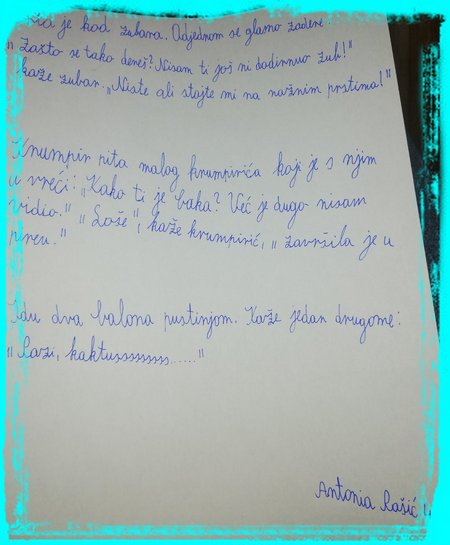 je kod zubara. Odjednom se glasno zadere:
"Zašto se tako dereš? Nisam ti još ni dodirnuo zub!"
kaže zubar. "Niste ali stojte mi na nožnim prstima!"
Krumpir pita malog krumpirića koji je s njim
u vreći: "Kako ti je baka? Već je dugo nisam
vidio." "Loše", kaže krumpirić, "završila je u
pireu."
Idu dva balona pustinjom. Kaže jedan drugome:
"Pazi, kaktusssssssss......"
Antonia Rašić